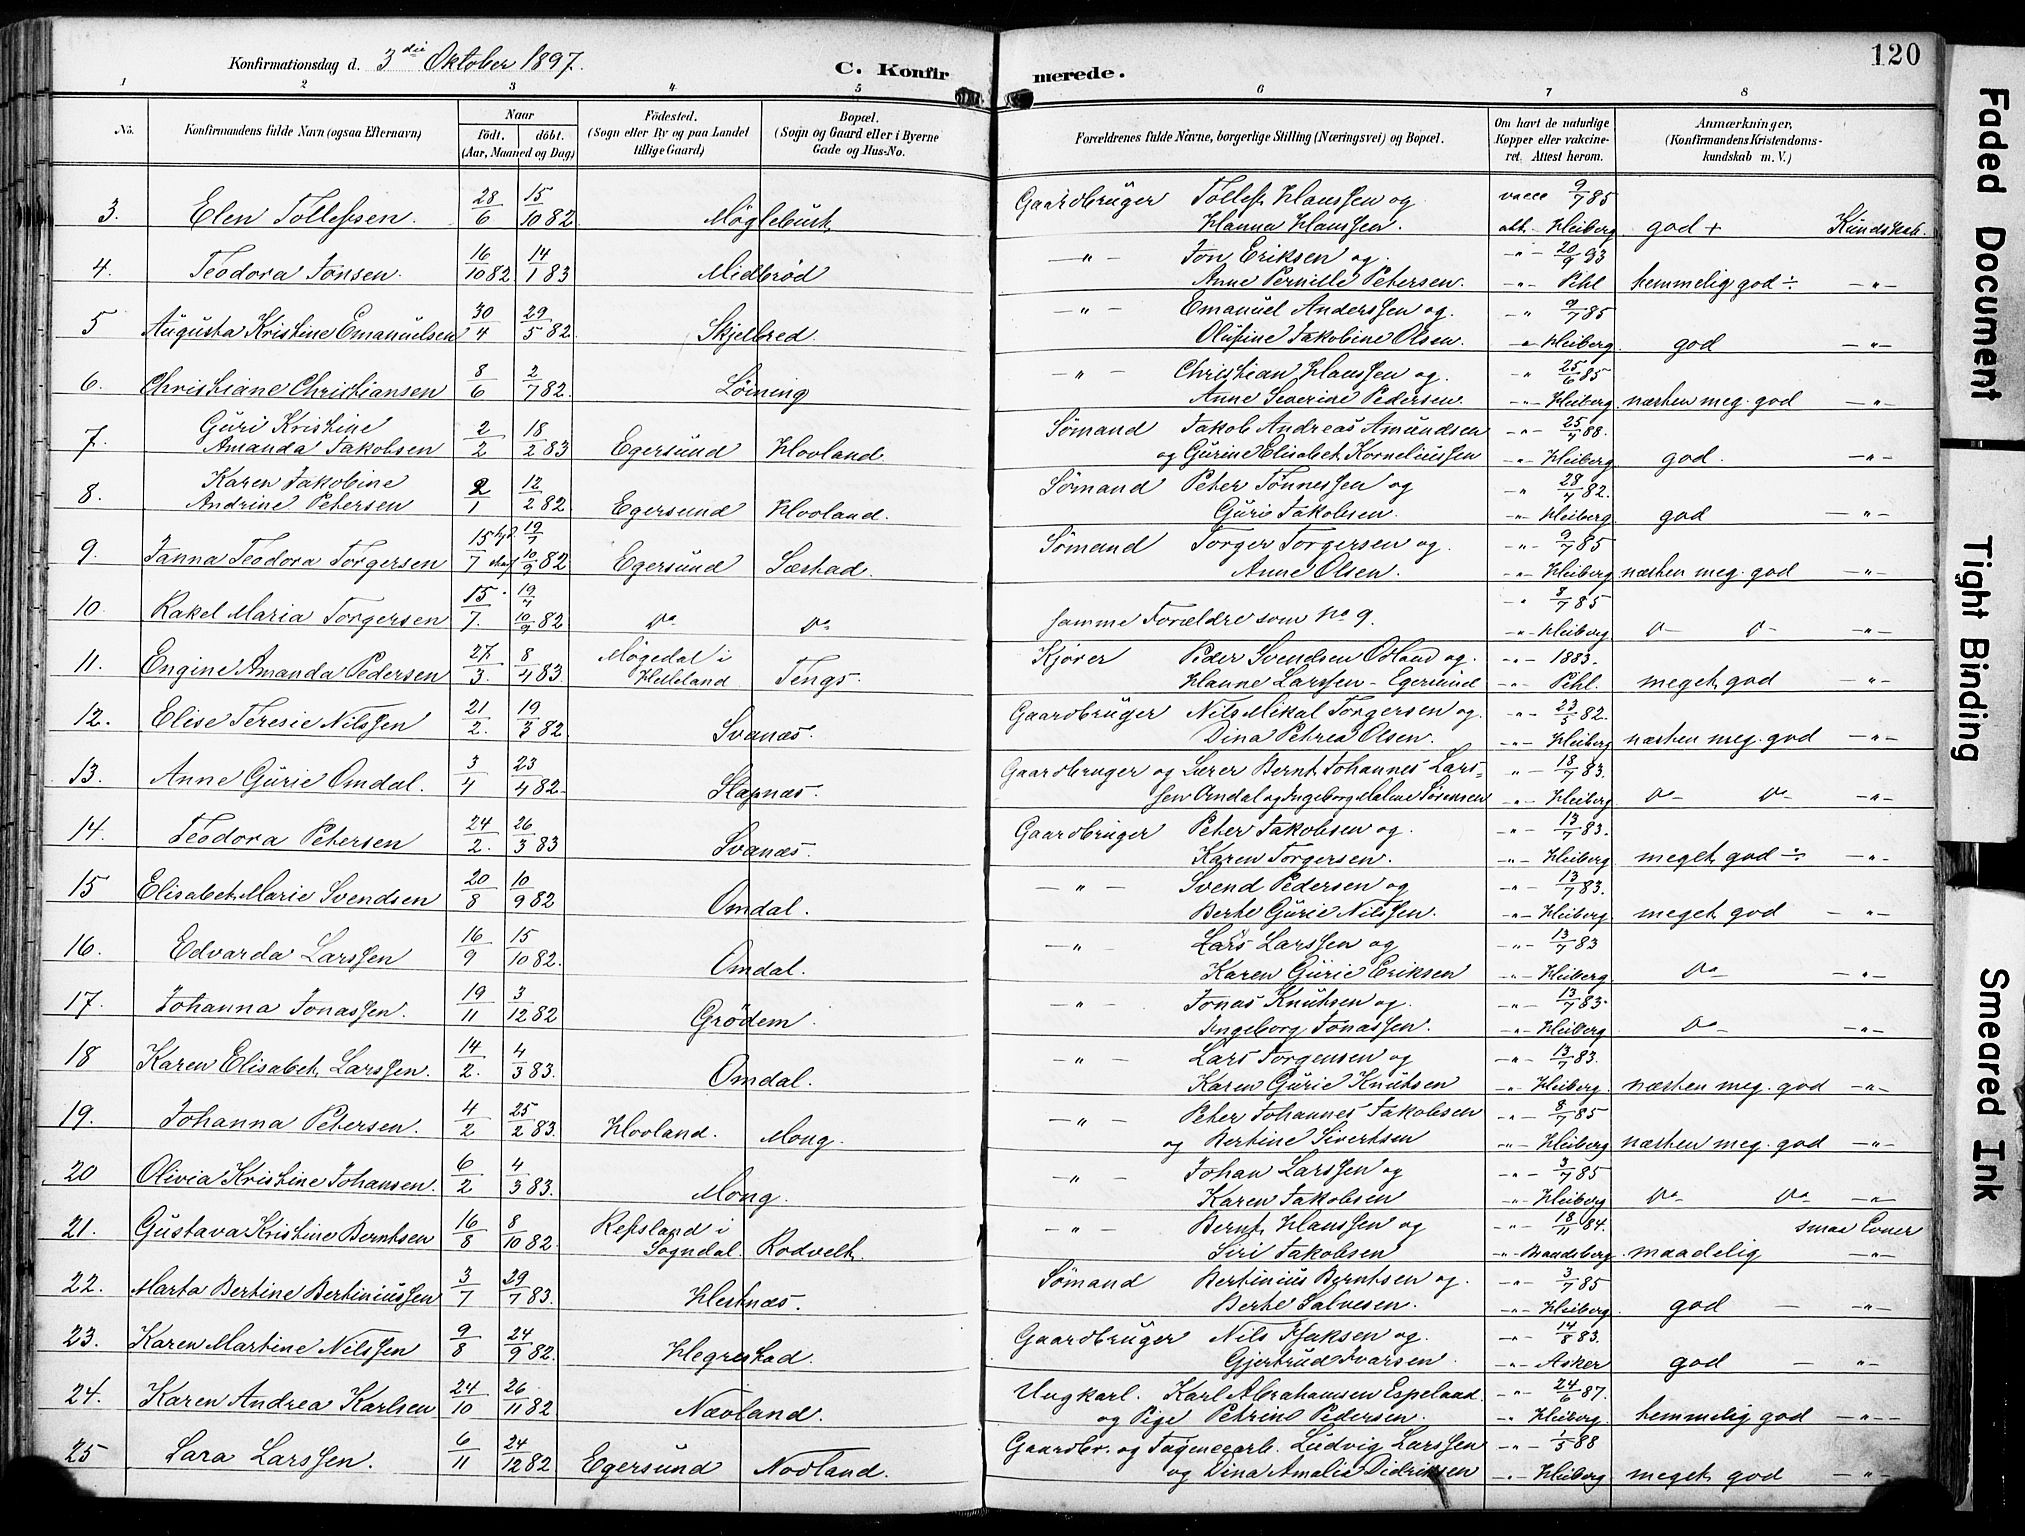 Konfirmationsdag d. 3die Oktober 1897.
C. Konfirmerede.
120
1 2 3 4 5 6 7 8
No.
Konfirmandens fulde Navn (ogsaa Efternavn)
Naar
Födt. döbt.
(Aar, Maaned og Dag)
Födested.
(Sogn eller By og paa Landet
tillige Gaard)
Bopæl.
(Sogn og Gaard eller i Byerne
Gade og Hus-No.
Forældrenes fulde Navne, borgerlige Stilling (Næringsvei) og Bopæl.
Om havt de naturlige
Kopper eller vakcine-
ret. Attest herom.
Anmærkninger,
(Konfirmandens Kristendoms-
kundskab m. V.)
3. Elen Tollefsen. 28/6 15/10 82 Møglebust Gaardbruger Tollef Hanssen og vacc 9/7 85
Hanna Hanssen. att. Heiberg god + Kundskab.
4. Teodora Jonsen. 16/10 82 14/1 83 Midbrød -"- Jon Eriksen og -"- 20/9 93
Anne Pernille Petersen. -"- Pihl temmelig god ÷ -"-
5 Augusta Kristine Emanuelsen 30/4 29/5 82 Skjelbred -"- Emanuel Anderssen og -"- 9/7 85
Olufine Jakobine Olsen. -"- Heiberg god -"-
6. Christiane Christiansen 8/6 2/7 82. Løining -"- Christian Hanssen og -"- 25/6 85
Anne Severine Pedersen. -"- Heiberg. næsten meg. god -"-
7. Guri Kristine
Amanda Jakobsen 2/2 18/2 83 Egersund Hovland Sømand Jakob Andreas Amundsen -"- 25/4 88.
og Gurine Elisabet Korneliussen -"- Heiberg god. -"-
8. Karen Jakobine
Andrine Petersen 2/1 12/2 82 Egersund Hovland. Sømand Peter Tønnessen og -"- 28/4 82.
Guri Jakobsen. -"- Heiberg god -"-
9. Janna Teodora Torgersen 15/7 19/7 10/9 82 Egersund Sæstad. Sømand Torger Torgersen og -"- 9/7 85
Anne Olsen. -"- Heiberg næsten meg. god -"-
10. Rakel Maria Torgersen 15/7. 19/7 10/9 82 Do Do Samme Forældre som No 9. -"- 8/7 85
-"- Heiberg Do Do -"-
11. Engine Amanda Pedersen 27/3. 8/4 83 Møgedal i
Helleland Tengs Kjører Peder Svendsen Odland og -"- 1883.
Hanne Larssen - Egersund -"- Pihl. meget god -"-
12. Elise Teresie Nilssen 21/2. 19/3 82. Svanæs. Gaardbruger Nils Mikal Torgersen og -"- 23/5 82.
Dina Petrea Olsen. -"- Heiberg næsten meg. god -"-
13. Anne Gurie Omdal. 3/4 23/4 82 Stapnæs. Gaardbruger og Lærer Bernt Johannes Lars- -"- 18/7 83.
sen Omdal og Ingeborg Malene Sørensen -"- Heiberg Do Do -"-
14. Teodora Petersen 24/2. 26/3 83 Svanæs. Gaardbruger Peter Jakobsen og -"- 13/7 83.
Karen Torgersen. -"- Heiberg meget god ÷ -"-
15 Elisabet Marie Svendsen 20/8 10/9 82 Omdal. -"- Svend Pedersen og -"- 13/7 83.
Berte Gurie Nilssen. -"- Heiberg. meget god -"-
16. Edvarda Larssen 16/9 15/10 82. Omdal. -"- Lars Larssen og -"- 13/7 83
Karen Gurie Eriksen -"- Heiberg. Do -"-
17. Johanna Jonassen. 19/11 3/12 82 Grödem. -"- Jonas Knutsen og -"- 13/7 83.
Ingeborg Jonassen. -"- Heiberg Do -"-
18 Karen Elisabet Larssen. 14/2. 4/3 83. Omdal. -"- Lars Torgersen og -"- 13/7 83.
Karen Gurie Knutsen -"- Heiberg. næsten meg. god -"-
19. Johanna Petersen. 4/2 25/2 83. Hovland. Mong. -"- Peter Johannes Jakobsen -"- 8/7 85
og Bertine Sivertsen -"- Heiberg næsten meg. god -"-
20 Olivia Kristine Johansen. 6/2 4/3 83. Mong. -"- Johan Larssen og -"- 3/7 85
Karen Jakobsen -"- Heiberg Do Do -"-
21. Gustava Kristine Berntsen 16/8 8/10 82. Refsland i
Sogndal. Rodvelt. -"- Bernt Hanssen og -"- 18/11 84. smaa Evner
Siri Jakobsen -"- Brandsberg. maadelig -"-
22. Marta Bertine Bertiniussen 3/7 29/7 83. Hestnæs. Sømand Bertinius Berntsen og -"- 3/7 85
Berte Salvesen. -"- Heiberg. god -"-
23. Karen Martine Nilssen 9/8 24/9 82. Hegrestad. Gaardbruger Nils Isaksen og -"- 14/8 83.
Gjertrud Ivarsen -"- Asker god -"-
24. Karen Andrea Karlsen 24/10 26/11 82 Nævland. Ungkarl. Karl Abrahamsen Espeland -"- 24/6 87.
og Pige Petrine Pedersen. -"- Heiberg. temmelig god -"-
25 Lara Larssen. 6/11 24/12 82 Egersund Nodland. Gaardbr. og Fayencearb. Ludvig Larssen -"- 1/5 88
og Dina Amalie Didriksen -"- Heiberg meget god -"-
Faded Document
Tight Binding
Smeared Ink